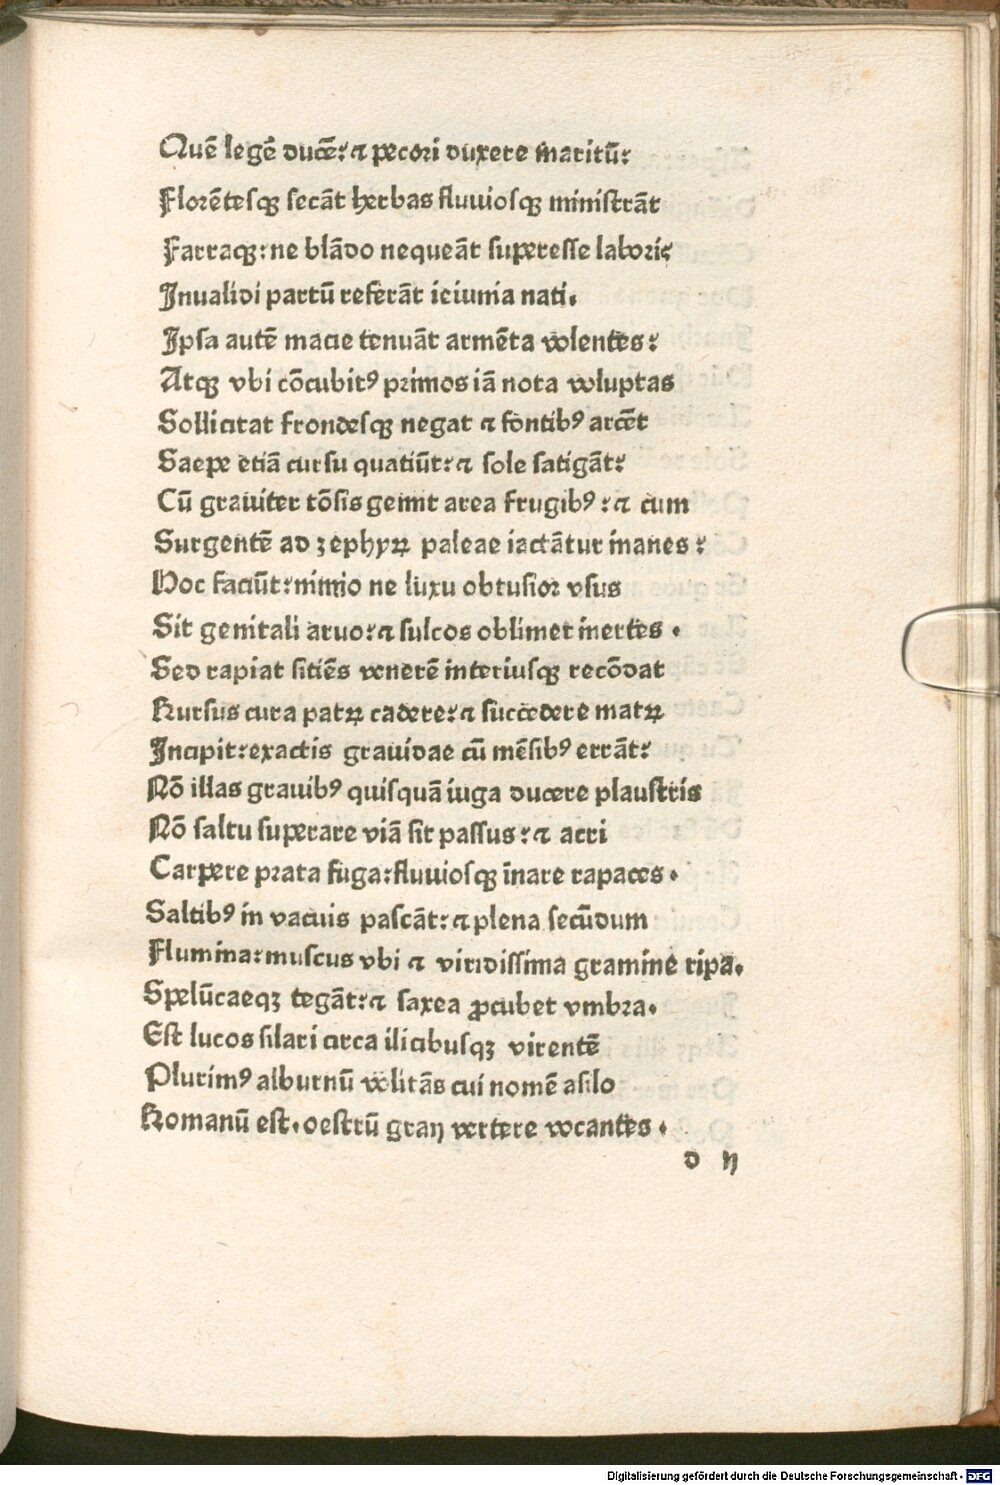 Quē legē ducē: ⁊ pecori duxere maritū:
Florētesqꝫ secāt herbas fluuiosqꝫ ministrāt
Farraqꝫ: ne blādo nequeāt superesse labori:
Inualidi partū referāt ieiunia nati.
Ipsa autē macie tenuāt armēta volentes:
Atqꝫ vbi cōcubitꝰ primos iā nota voluptas
Sollicitat frondesqꝫ negat ⁊ fontibꝰ arcēt
Saepe etiā cursu quatiūt: ⁊ sole fatigāt:
Cū grauiter tōsis gemit area frugibꝰ: ⁊ cum
Surgentē ad zephyꝝ paleae iactātur inanes:
Hoc faciūt: nimio ne luxu obtusior vsus
Sit genitali aruo: ⁊ sulcos oblimet inertes.
Sed rapiat sitiēs venerē interiusqꝫ recōdat
Rursus cura patꝝ cadere: ⁊ succedere matꝝ
Incipit: exactis grauidae cū mēsibꝰ errāt:
Nō illas grauibꝰ quisquā iuga ducere plaustris
Nō saltu superare viā sit passus: ⁊ acri
Carpere prata fuga: fluuiosqꝫ īnare rapaces.
Saltibꝰ in vacuis pascāt: ⁊ plena secūdum
Flumina: muscus vbi ⁊ viridissima gramine ripa.
Spelūcaeqꝫ tegāt: ⁊ saxea ꝓcubet vmbra.
Est lucos silari circa ilicibusqꝫ virentē
Plurimꝰ alburnū volitās cui nomē asilo
Romanū est. oestrū graij vertere vocantes.
d ij
Digitalisierung gefördert durch die Deutsche Forschungsgemeinschaft - DFG